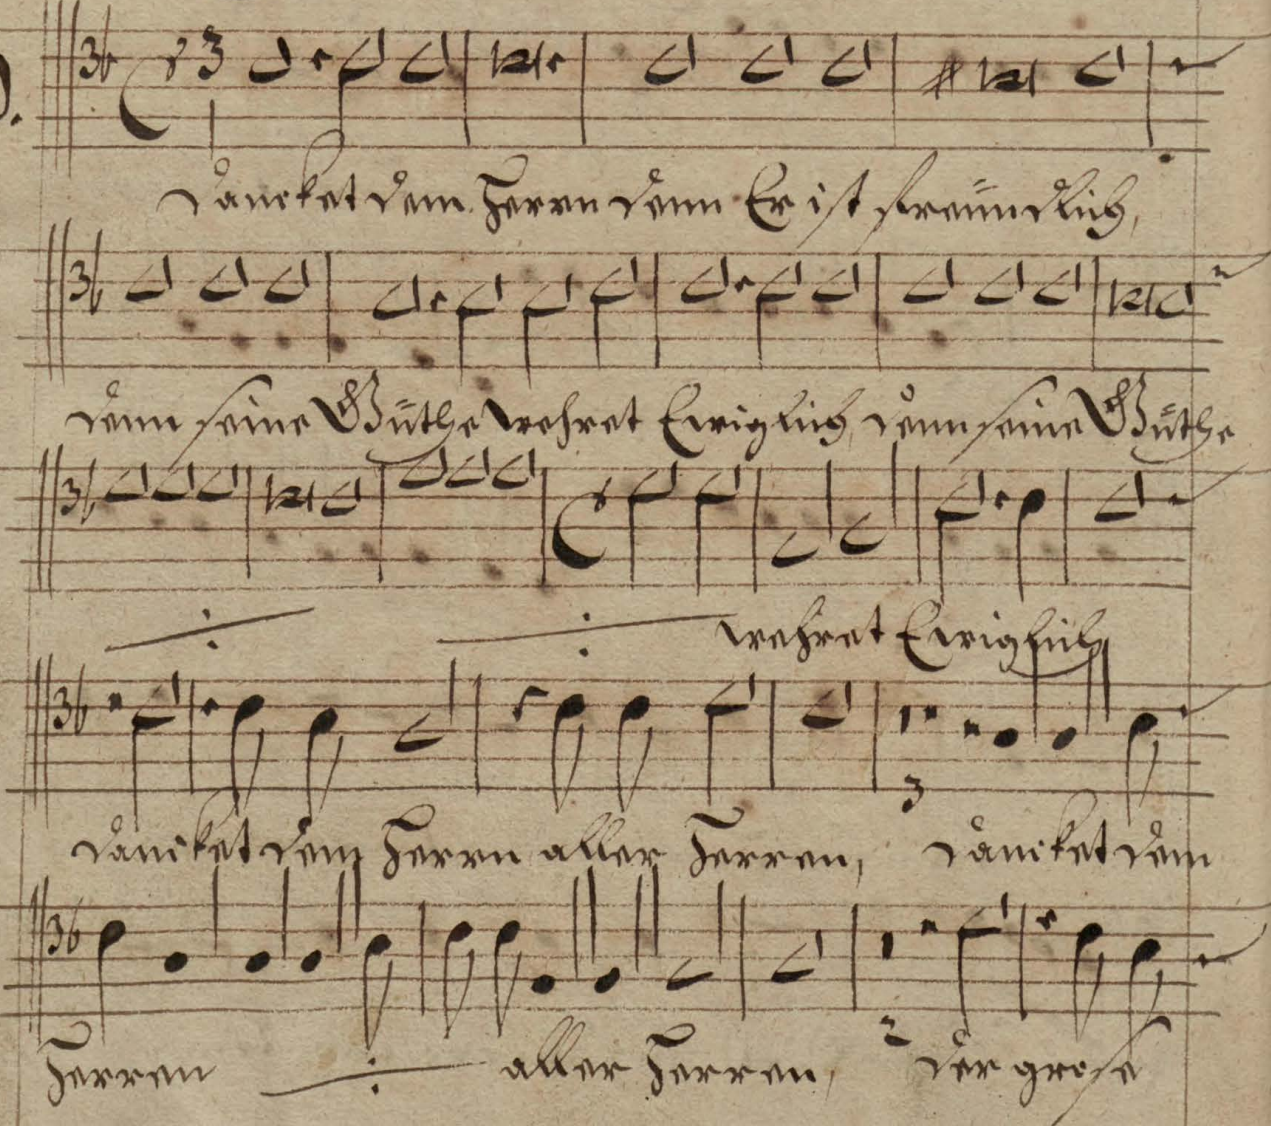 Dancket dem Herrn denn Er ist freündlich,
denn seine Güthe wehret Ewiglich, denn seine Güthe
wehret Ewiglich
Dancket dem Herrn aller Herren, Dancket dem
Herren aller Herren, der große